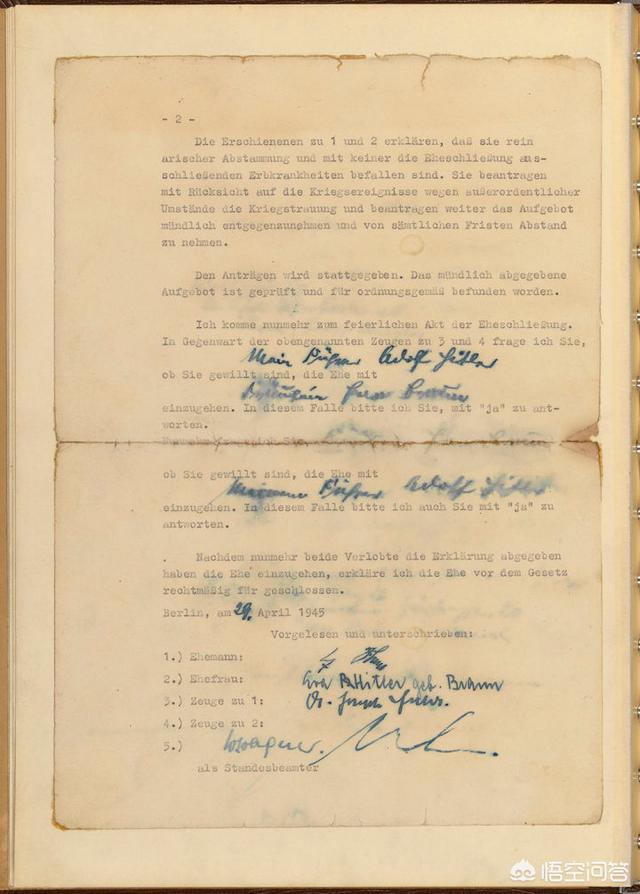 - 2 -
Die Erschienenen zu 1 und 2 erklären, daß sie rein
arischer Abstammung und mit keiner die Eheschließung aus-
schließenden Erbkrankheiten befallen sind. Sie beantragen
mit Rücksicht auf die Kriegsereignisse wegen außerordentlicher
Umstände die Kriegstrauung und beantragen weiter das Aufgebot
mündlich entgegenzunehmen und von sämtlichen Fristen Abstand
zu nehmen.
Den Anträgen wird stattgegeben. Das mündlich abgegebene
Aufgebot ist geprüft und für ordnungsgemäß befunden worden.
Ich komme nunmehr zum feierlichen Akt der Eheschließung.
In Gegenwart der obengenannten Zeugen zu 3 und 4 frage ich Sie,
Mein Führer Adolf Hitler
ob Sie gewillt sind, die Ehe mit
Braun
einzugehen. In diesem Falle bitte ich Sie, mit "ja" zu ant-
worten.
ob Sie gewillt sind, die Ehe mit
Meinem Führer Adolf Hitler
einzugehen. In diesem Falle bitte ich auch Sie mit "ja" zu
antworten.
. Nachdem nunmehr beide Verlobte die Erklärung abgegeben
haben die Ehe einzugehen, erkläre ich die Ehe vor dem Gesetz
rechtmäßig für geschlossen.
Berlin, am 29. April 1945
Vorgelesen und unterschrieben:
1.) Ehemann:
2.) Ehefrau: Eva B Hitler geb. Braun
3.) Zeuge zu 1: Dr. Joseph
4.) Zeuge zu 2:
5.) Waagner.
als Standesbeamter
悟空问答